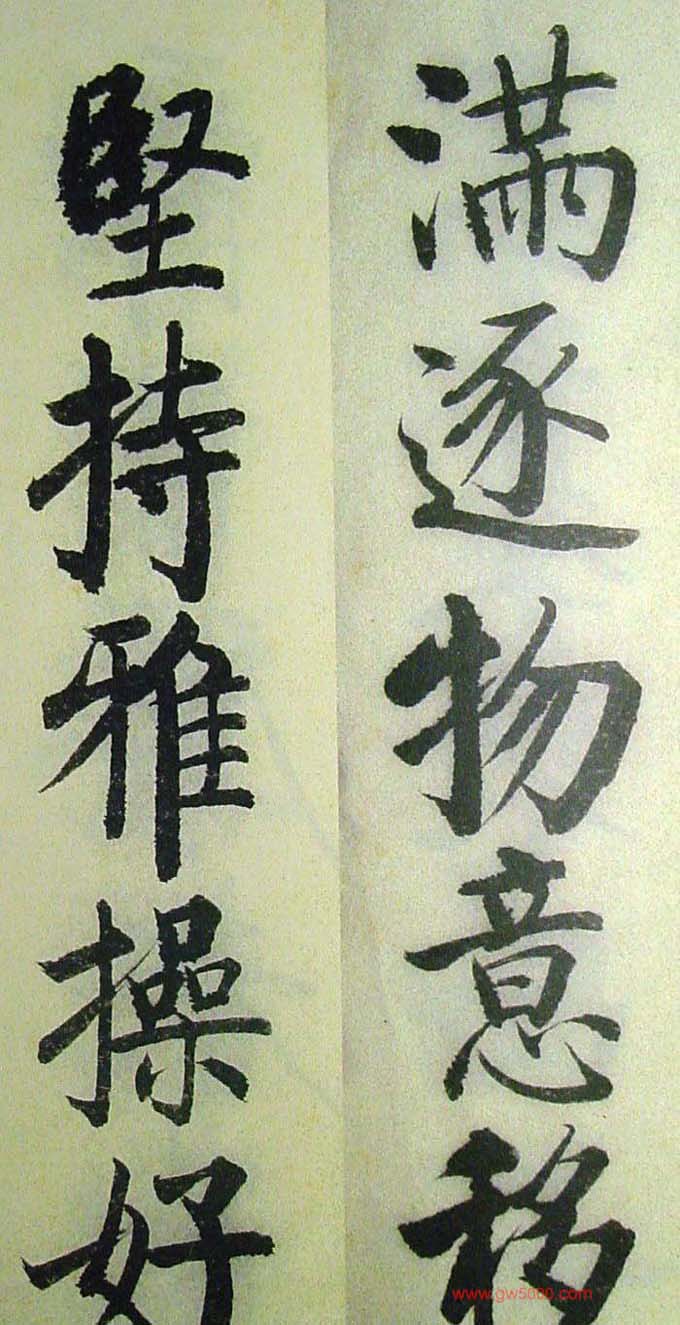 满逐物意移
坚持雅操好
www.gw5000.com